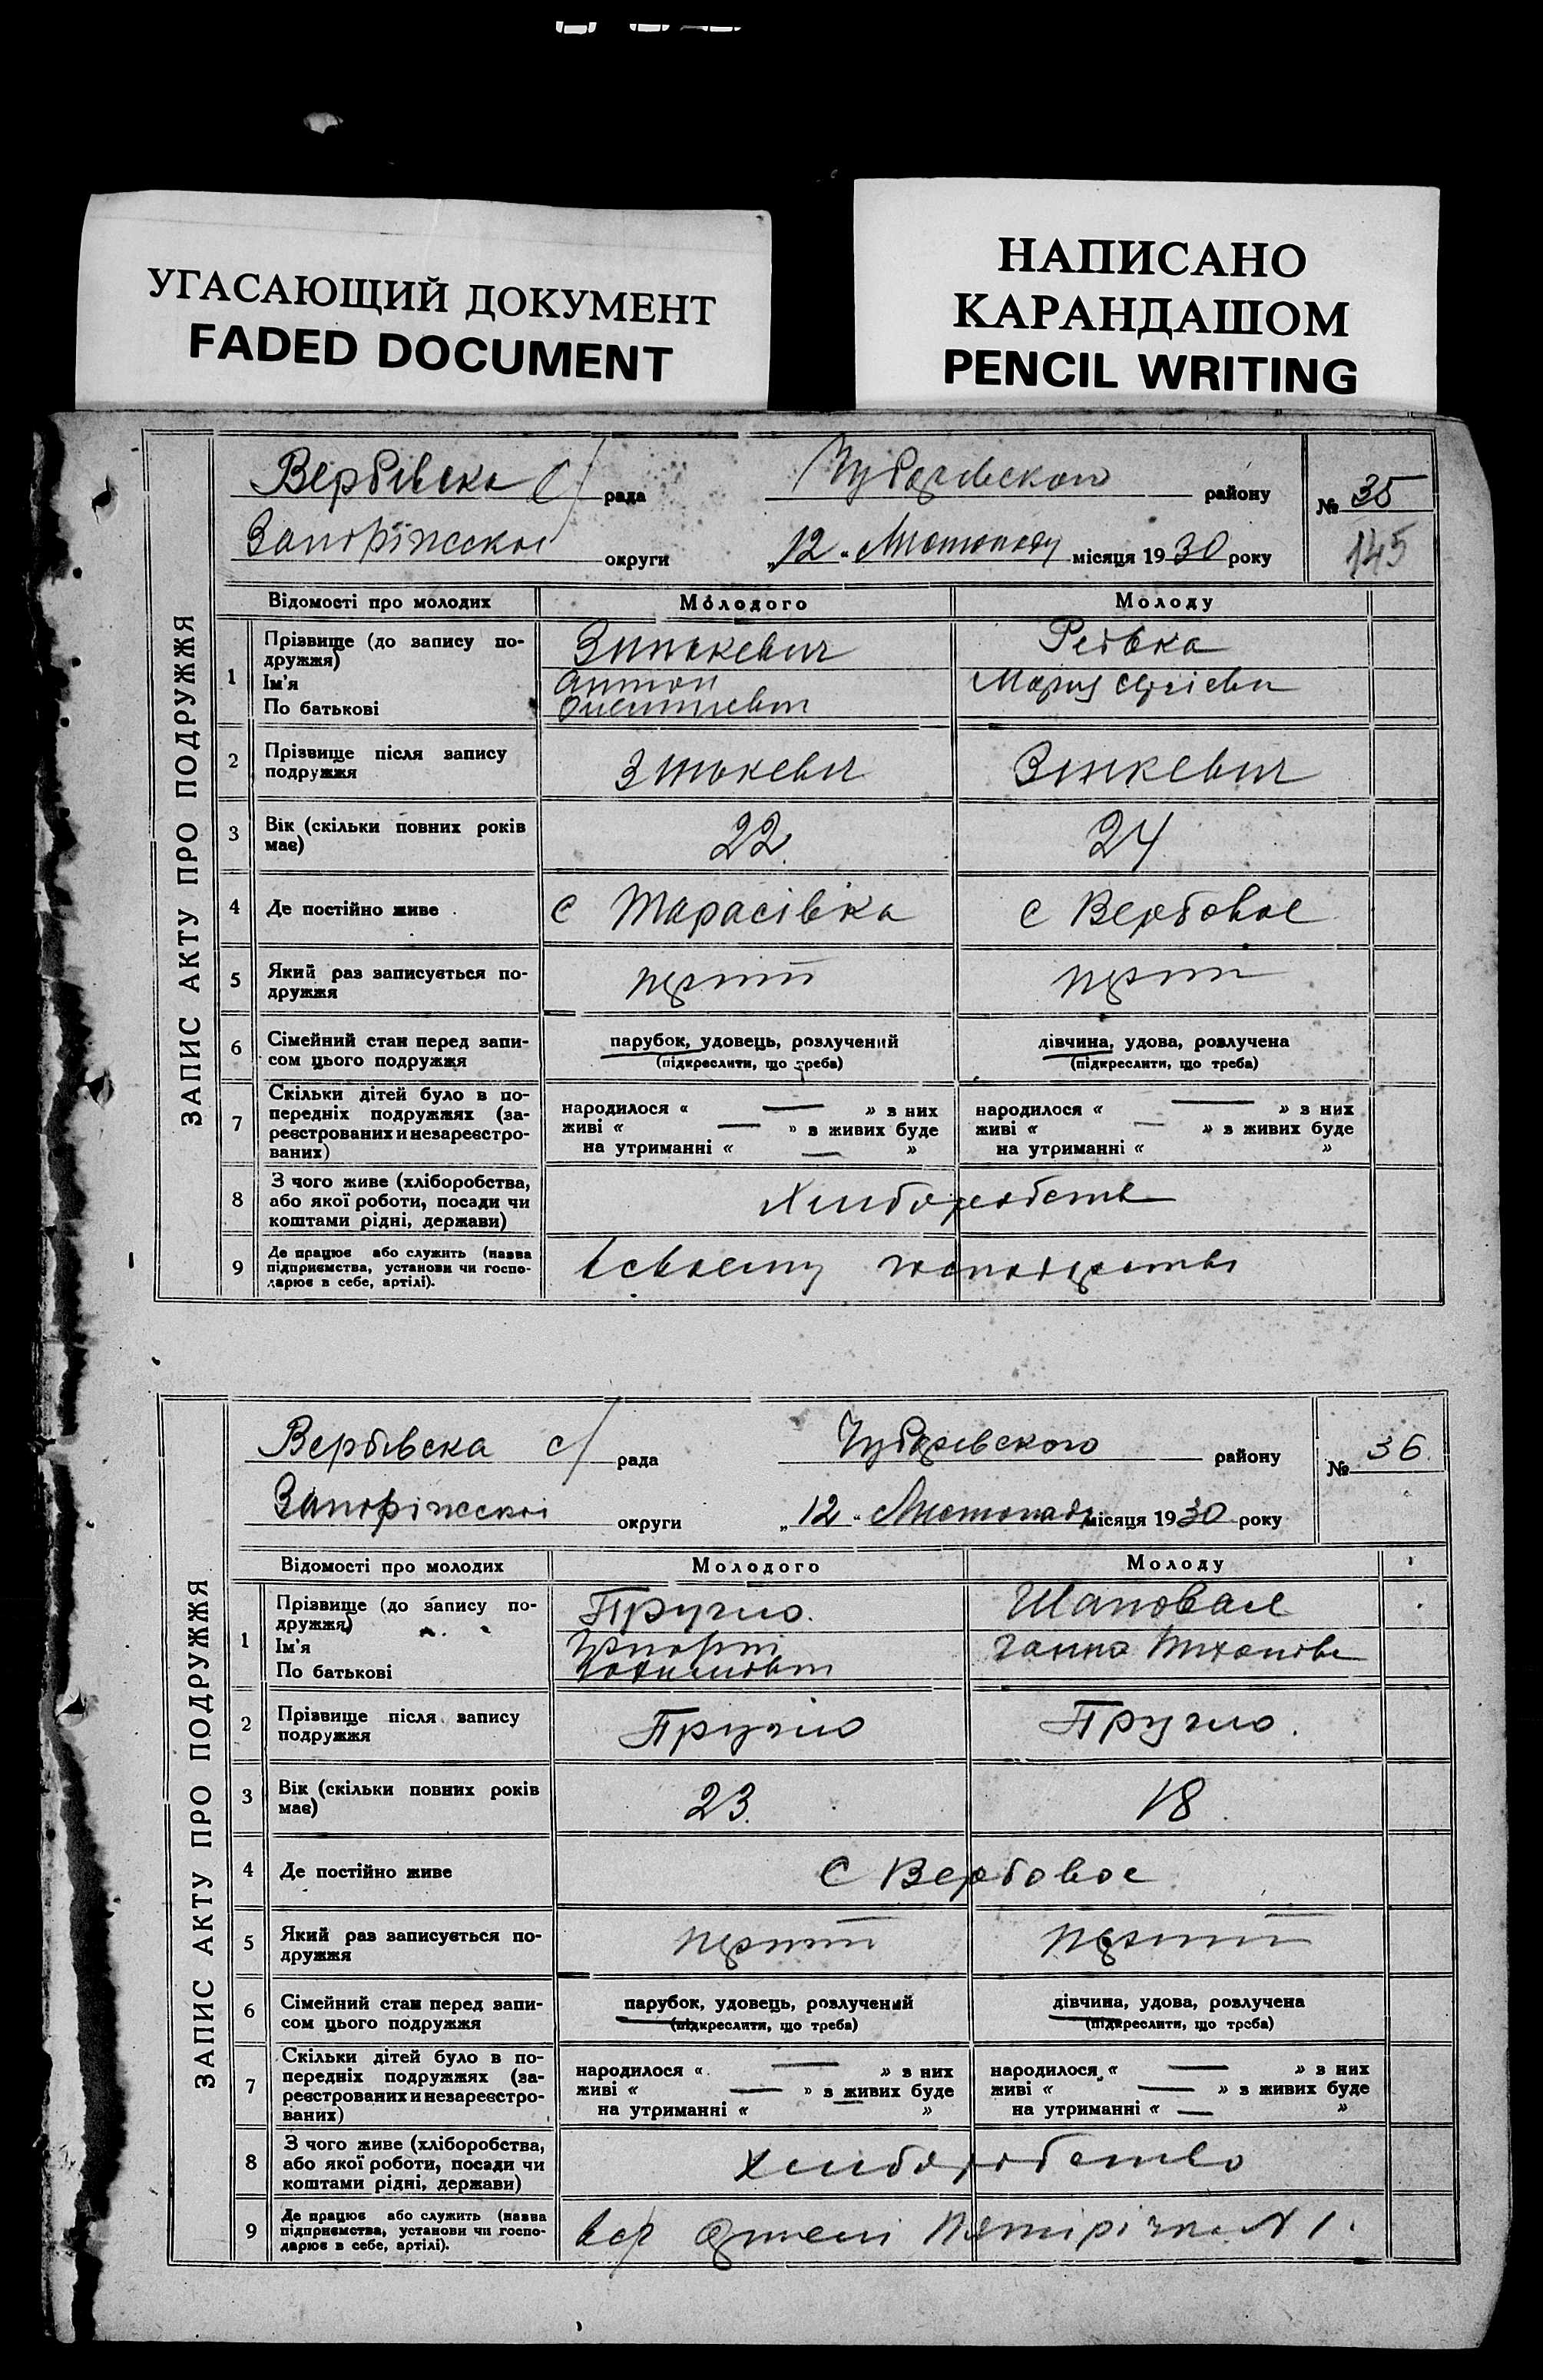 УГАСАЮЩИЙ ДОКУМЕНТ
FADED DOCUMENT
НАПИСАНО
КАРАНДАШОМ
PENCIL WRITING
ЗАПИС АКТУ ПРО ПОДРУЖЖЯ
Вербівска с/ рада Чубарівского району № 35
Запоріжскої округи „12“ Листопаду місяця 1930 року 145
Відомості про молодих Молодого Молоду
1 Прізвище (до запису по-
дружжя) Зинькевич Редька
Ім'я Антон Мария Сергієвн
По батькові
2 Прізвище після запису
подружжя Зинькевич Зинкевич
3 Вік (скільки повних років
має) 22 24
4 Де постійно живе с Тарасівка с Вербовое
5 Який раз записується по-
дружжя перший перший
6 Сімейний стан перед запи-
сом цього подружжя парубок, удовець, розлучений дівчина, удова, розлучена
(підкреслити, що треба) (підкреслити, що треба)
7 Скільки дітей було в по-
передніх подружжях (за-
реєстрованих и незареєстро-
ваних) народилося « — » з них народилося « — » з них
живі « — » з живих буде живі « — » з живих буде
на утриманні « — » на утриманні « »
8 З чого живе (хліборобства,
або якої роботи, посади чи
коштами рідні, держави) Хлиборобств
9 Де працює або служить (назва
підприємства, установи чи госпо-
дарює в себе, артілі). всвоему господарстві
ЗАПИС АКТУ ПРО ПОДРУЖЖЯ
Вербівска с/ рада Чубарівского району № 36
Запоріжскої округи „12“ Листопаду місяця 1930 року
Відомості про молодих Молодого Молоду
1 Прізвище (до запису по-
дружжя) Пругло. Шаповал
Ім'я Ганна Тихонівн
По батькові
2 Прізвище після запису
подружжя Пругло Пругло.
3 Вік (скільки повних років
має) 23 18
4 Де постійно живе С Вербовое
5 Який раз записується по-
дружжя перший перший
6 Сімейний стан перед запи-
сом цього подружжя парубок, удовець, розлучений дівчина, удова, розлучена
(підкреслити, що треба) (підкреслити, що треба)
7 Скільки дітей було в по-
передніх подружжях (за-
реєстрованих и незареєстро-
ваних) народилося « — » з них народилося « — » з них
живі « — » з живих буде живі « — » з живих буде
на утриманні « — » на утриманні « — »
8 З чого живе (хліборобства,
або якої роботи, посади чи
коштами рідні, держави) Хлиборобство
9 Де працює або служить (назва
підприємства, установи чи госпо-
дарює в себе, артілі). артелі Пятирічка N 1.